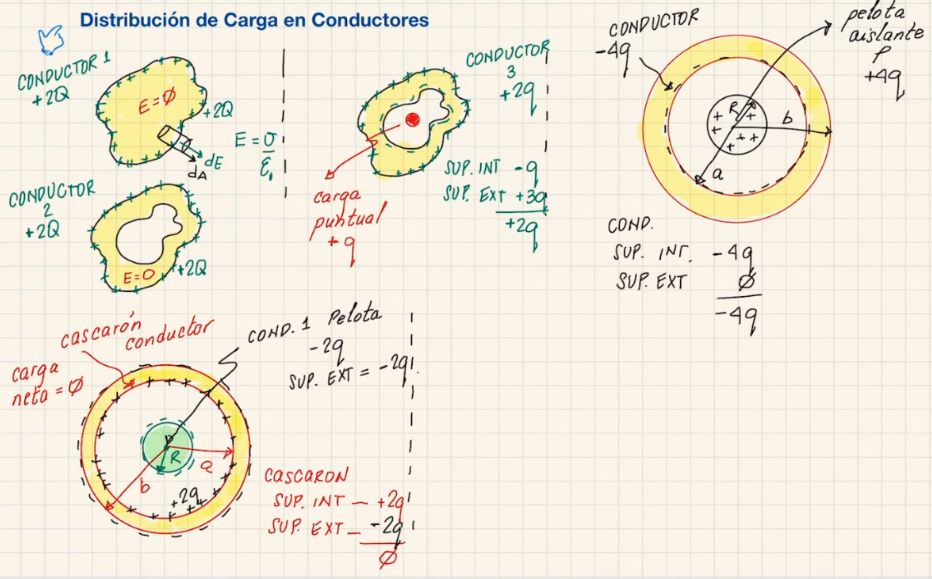 Distribución de Carga en Conductores
CONDUCTOR 1
+2Q
E=∅
+2Q
E = σ
ε₁
dE
dA
CONDUCTOR
2
+2Q
E=0
+2Q
CONDUCTOR
3
+2q
carga
puntual
+q
SUP. INT -q
SUP. EXT +3q
+2q
CONDUCTOR
-4q
pelota
aislante
ρ
+4q
R
b
a
COND.
SUP. INT. -4q
SUP. EXT ∅
-4q
cascarón
conductor
carga
neta = ∅
COND. 1 Pelota
-2q
SUP. EXT = -2q
R
a
b
+2q
CASCARON
SUP. INT — +2q
SUP. EXT — -2q
∅